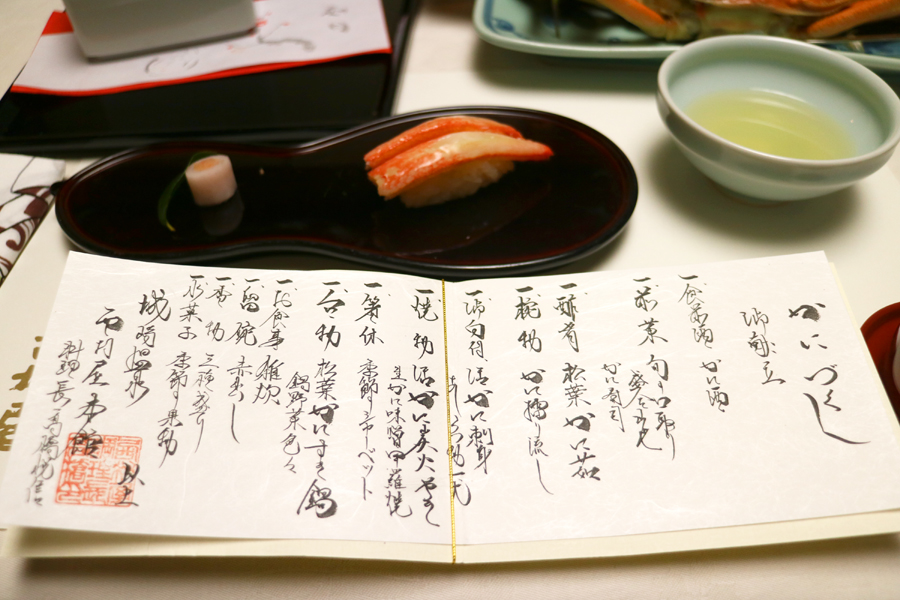 かにづくし
御献立
一食前酒 かに酒
一前菜 旬の口取り
かに寿司
一酢肴 松葉かに茹
一椀物 かに擂り流し
一御向付 活かに刺身
あしらい物一式
一焼物 活かに炭火やき
活かに味噌甲羅焼
一箸休 季節のシャーベット
一台物 松葉かにすき鍋
鍋野菜色々
一御食事 雑炊
一留椀 赤だし
一香物 三種盛り
一水菓子 季節の果物
城崎温泉
西村屋本館
料理長 高橋悦信
以上